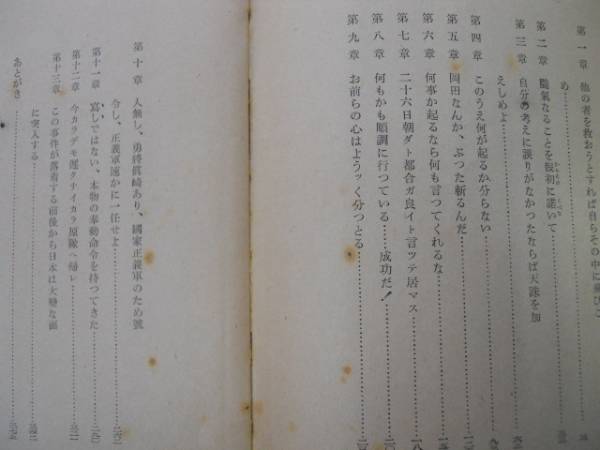 第一章 他の者を救おうとすれば自らその中に飛びこ
め
第二章 なることを仮初に
第三章 自分の考えに誤りがなかつたならば天誅を加
えしめよ
第四章 このうえ何が起るか分らない
第五章 岡田なんか、ぶつた斬るんだ
第六章 何事か起るなら何も言つてくれるな
第七章 二十六日朝ダト都合ガ良イト言ツテ居マス
第八章 何もかも順調に行つている……成功だ!
第九章 お前らの心はようッく分つとる
第十章 人無し、勇将眞崎あり、國家正義軍のため號
令し、正義軍速かに一任せよ
第十一章 寫しではない、本物の奉勅命令を持つてきた
第十二章 今カラデモ遅クナイカラ原隊ヘ帰レ
第十三章 この事件が落着する前後から日本は大變な面
に突入する
あとがき